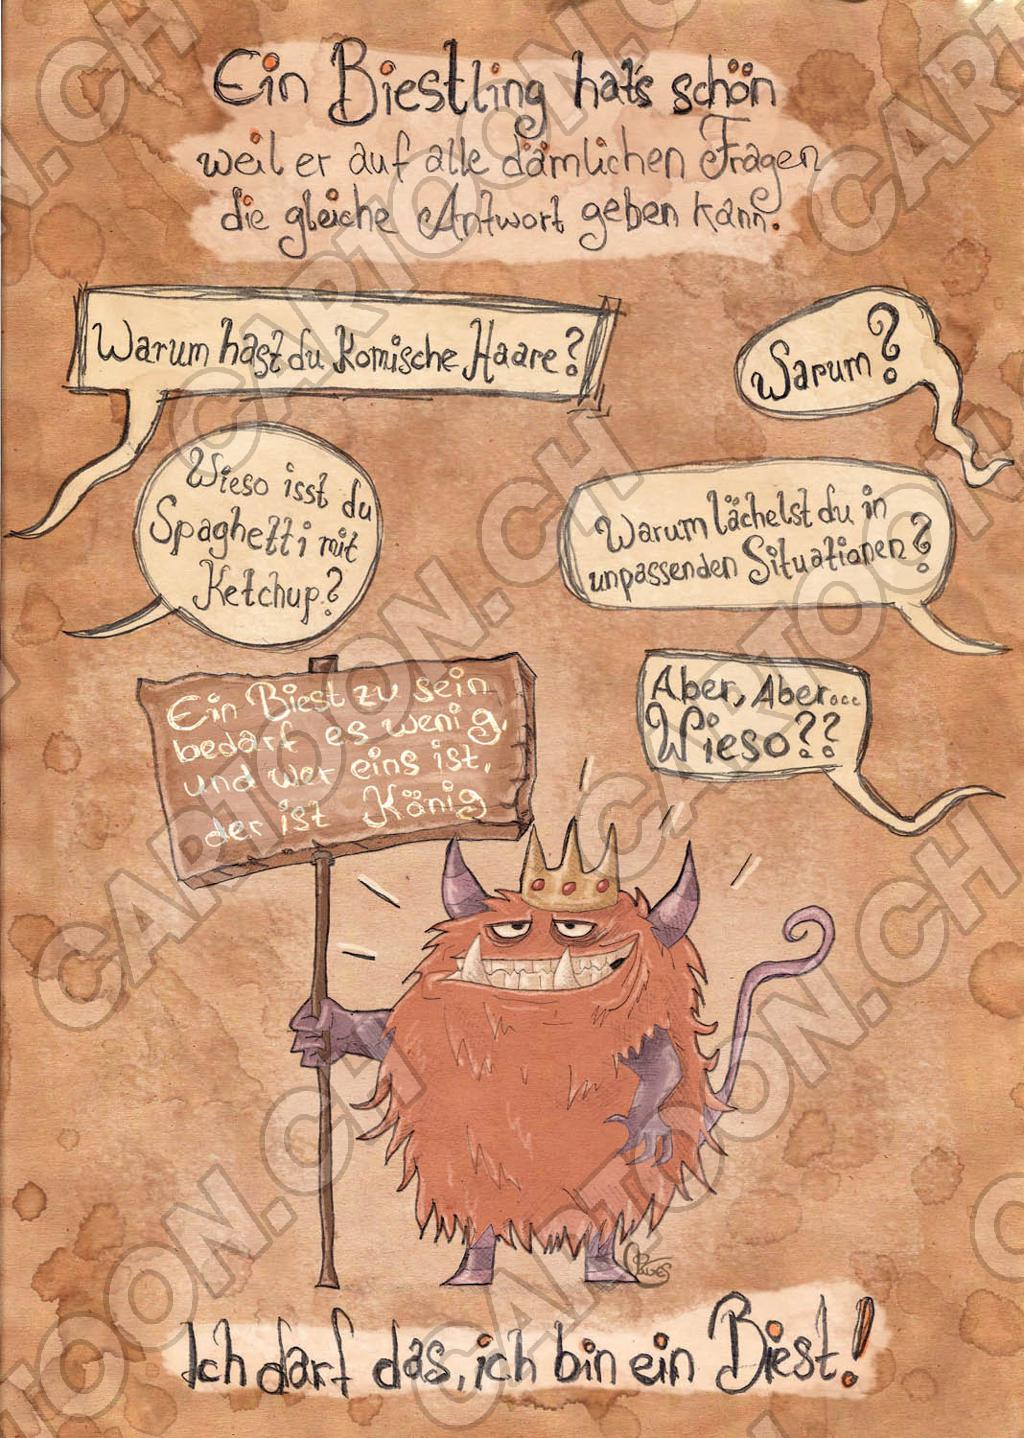 Ein Biestling hat's schön
weil er auf alle dämlichen Fragen
die gleiche Antwort geben kann.
Warum hast du komische Haare?
Warum?
Wieso isst du
Spaghetti mit
Ketchup?
Warum lächelst du in
unpassenden Situationen?
Aber, Aber...
Wieso??
Ein Biest zu sein
bedarf es wenig,
und wer eins ist,
der ist König
Ich darf das, ich bin ein Biest!
CARTOON.CH